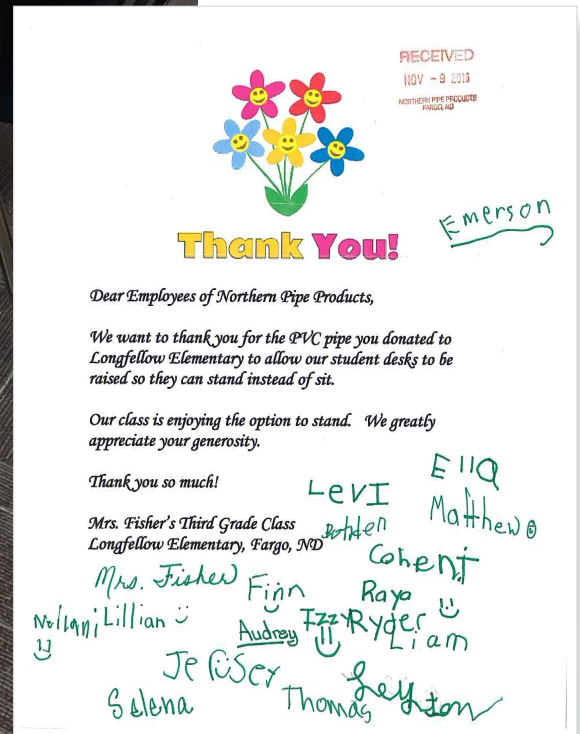 RECEIVED
NOV - 9 2016
NORTHERN PIPE PRODUCTS
FARGO, ND
Thank You!
Emerson
Dear Employees of Northern Pipe Products,
We want to thank you for the PVC pipe you donated to
Longfellow Elementary to allow our student desks to be
raised so they can stand instead of sit.
Our class is enjoying the option to stand. We greatly
appreciate your generosity.
Thank you so much!
Mrs. Fisher's Third Grade Class
Longfellow Elementary, Fargo, ND
Ella
LevI
Matthew
Mrs. Fisher
Finn
Raya
Lillian
Izzy
Ryder
Audrey
Liam
Selena
Thomas
Leyton